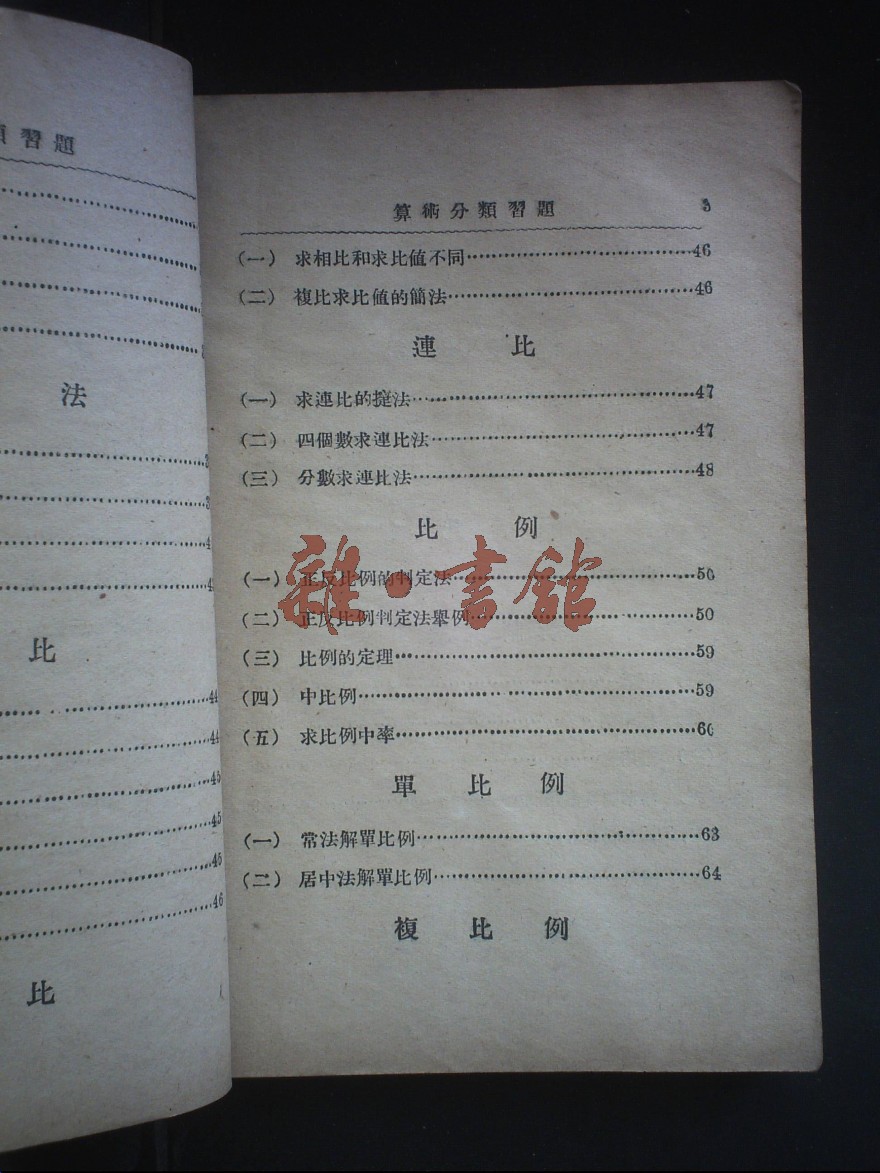 類習題
法
比
44
44
45
45
46
46
比
算術分類習題 3
(一) 求相比和求比値不同……46
(二) 複比求比値的簡法……46
連 比
(一) 求連比的捷法……47
(二) 四個數求連比法……47
(三) 分數求連比法……48
比 例
(一) 正反比例的判定法……50
(二) 正反比例判定法舉例……50
(三) 比例的定理……59
(四) 中比例……59
(五) 求比例中率……60
單 比 例
(一) 常法解單比例……63
(二) 居中法解單比例……64
複 比 例
雜·書館